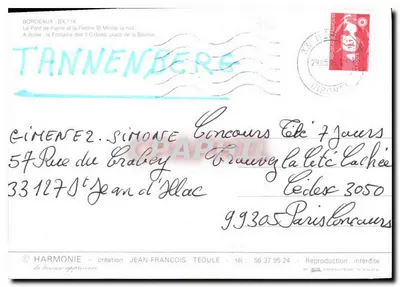 BORDEAUX - BX 116
Le Pont de Pierre et la Flèche St Michel la nuit
A droite : la Fontaine des 3 Grâces, place de la Bourse
TANNENBERG
GIMENEZ. SIMONE Concours Télé 7 Jours
57 Rue du Trabey Trouvez la Tête Cachée
33127 St Jean d'Illac Cédex 3050
99305 Paris Concours
© HARMONIE - création JEAN-FRANÇOIS TEOULE - tél : 56 37 95 24 - Reproduction interdite